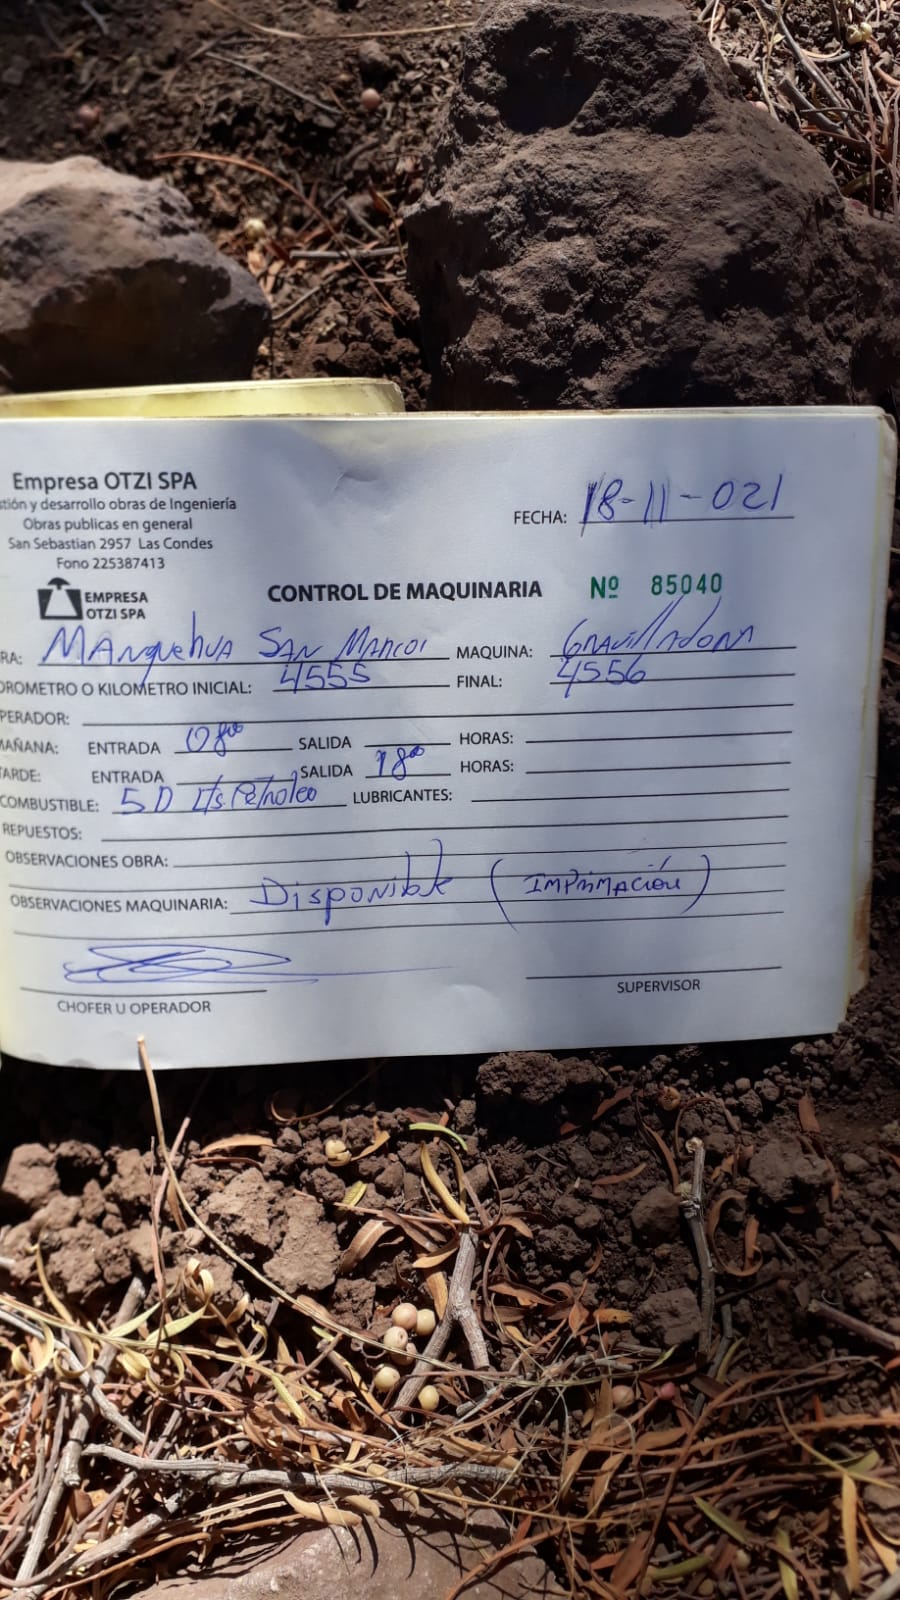 Empresa OTZI SPA
stión y desarrollo obras de Ingeniería
Obras publicas en general
San Sebastian 2957 Las Condes
Fono 225387413
FECHA: 18-11-021
EMPRESA
OTZI SPA
CONTROL DE MAQUINARIA Nº 85040
RA: Manquehua San Marcos MAQUINA: Gravilladora
OROMETRO O KILOMETRO INICIAL: 4555 FINAL: 4556
PERADOR:
MAÑANA: ENTRADA 08⁰⁰ SALIDA HORAS:
TARDE: ENTRADA SALIDA 18⁰⁰ HORAS:
COMBUSTIBLE: 50 Lts Petroleo LUBRICANTES:
REPUESTOS:
OBSERVACIONES OBRA:
OBSERVACIONES MAQUINARIA: Disponible (Imprimación)
CHOFER U OPERADOR
SUPERVISOR